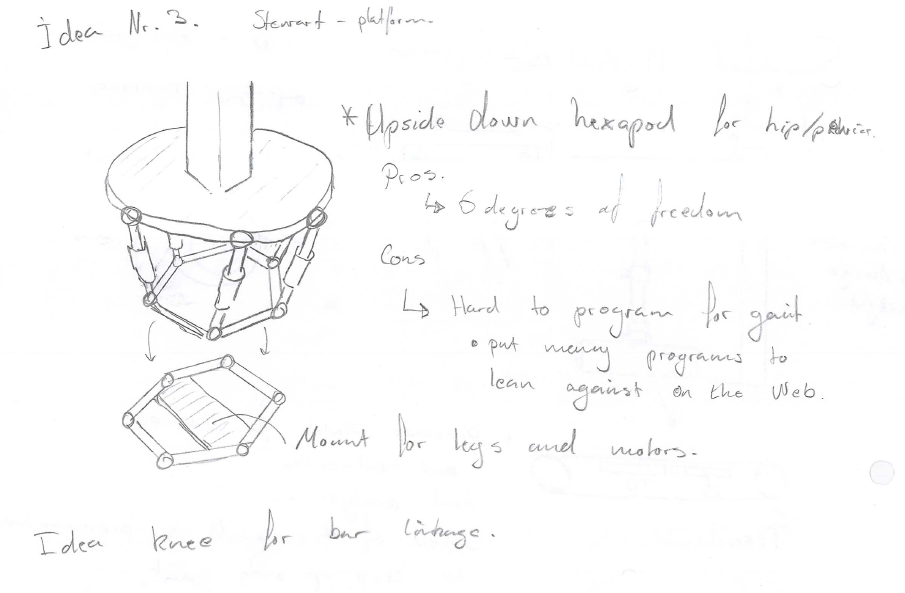 Idea Nr. 3. Stewart - platform.
* Upside down hexapod for hip/pelvic.
Pros.
↳ 6 degrees of freedom
Cons
↳ Hard to program for gait.
• put many programs to
lean against on the Web.
Mount for legs and motors.
Idea knee for bar linkage.